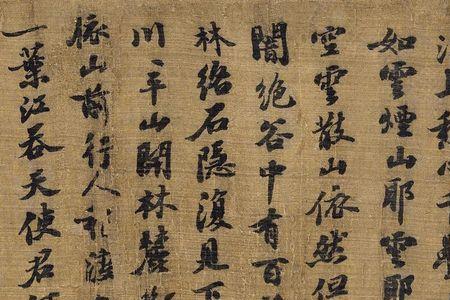 江上愁心千疊
如雲煙山耶雲耶
空雲散山依然但
闇絕谷中有百
林絡石隱復見下
川平山開林麓
依山前行人稍渡
一葉江吞天使君何